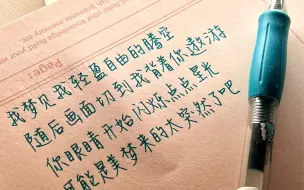 Build your know
Page:
我梦见我轻盈自由的腾空
随后画面切到我背着你遨游
你眼睛开始闪烁点点星光
只能是美梦来的太突然了吧